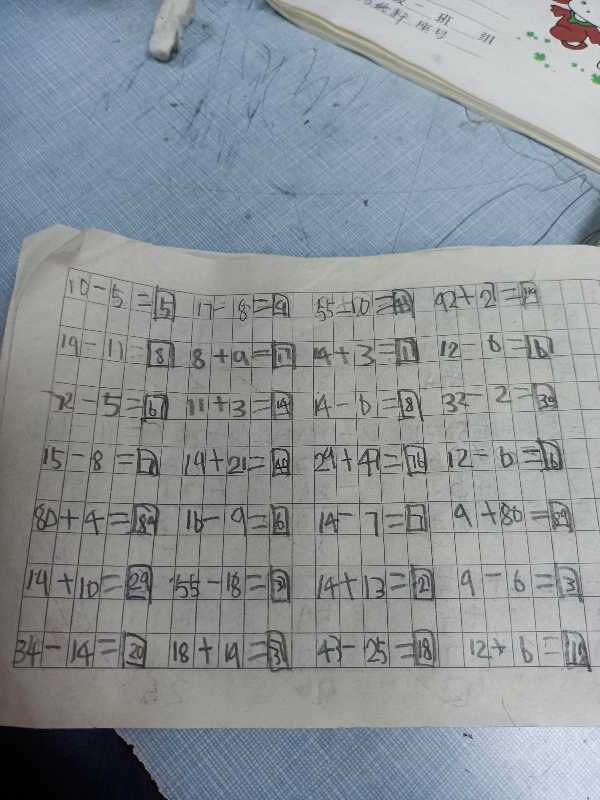 级一班 组
座号
10-5=5 17-8=9 55-10= 92+2=
19-11=8 8+9=17 14+3=17 12-6=6
-5=6 11+3=14 14-6=8 32-2=30
15-8=7 19+21=40 29+47=76 12-6=6
80+4=84 16-9= 14-7=7 9+80=89
19+10=29 55-18= 14+13= 9-6=3
34-14=20 18+19= 43-25=18 12+6=18